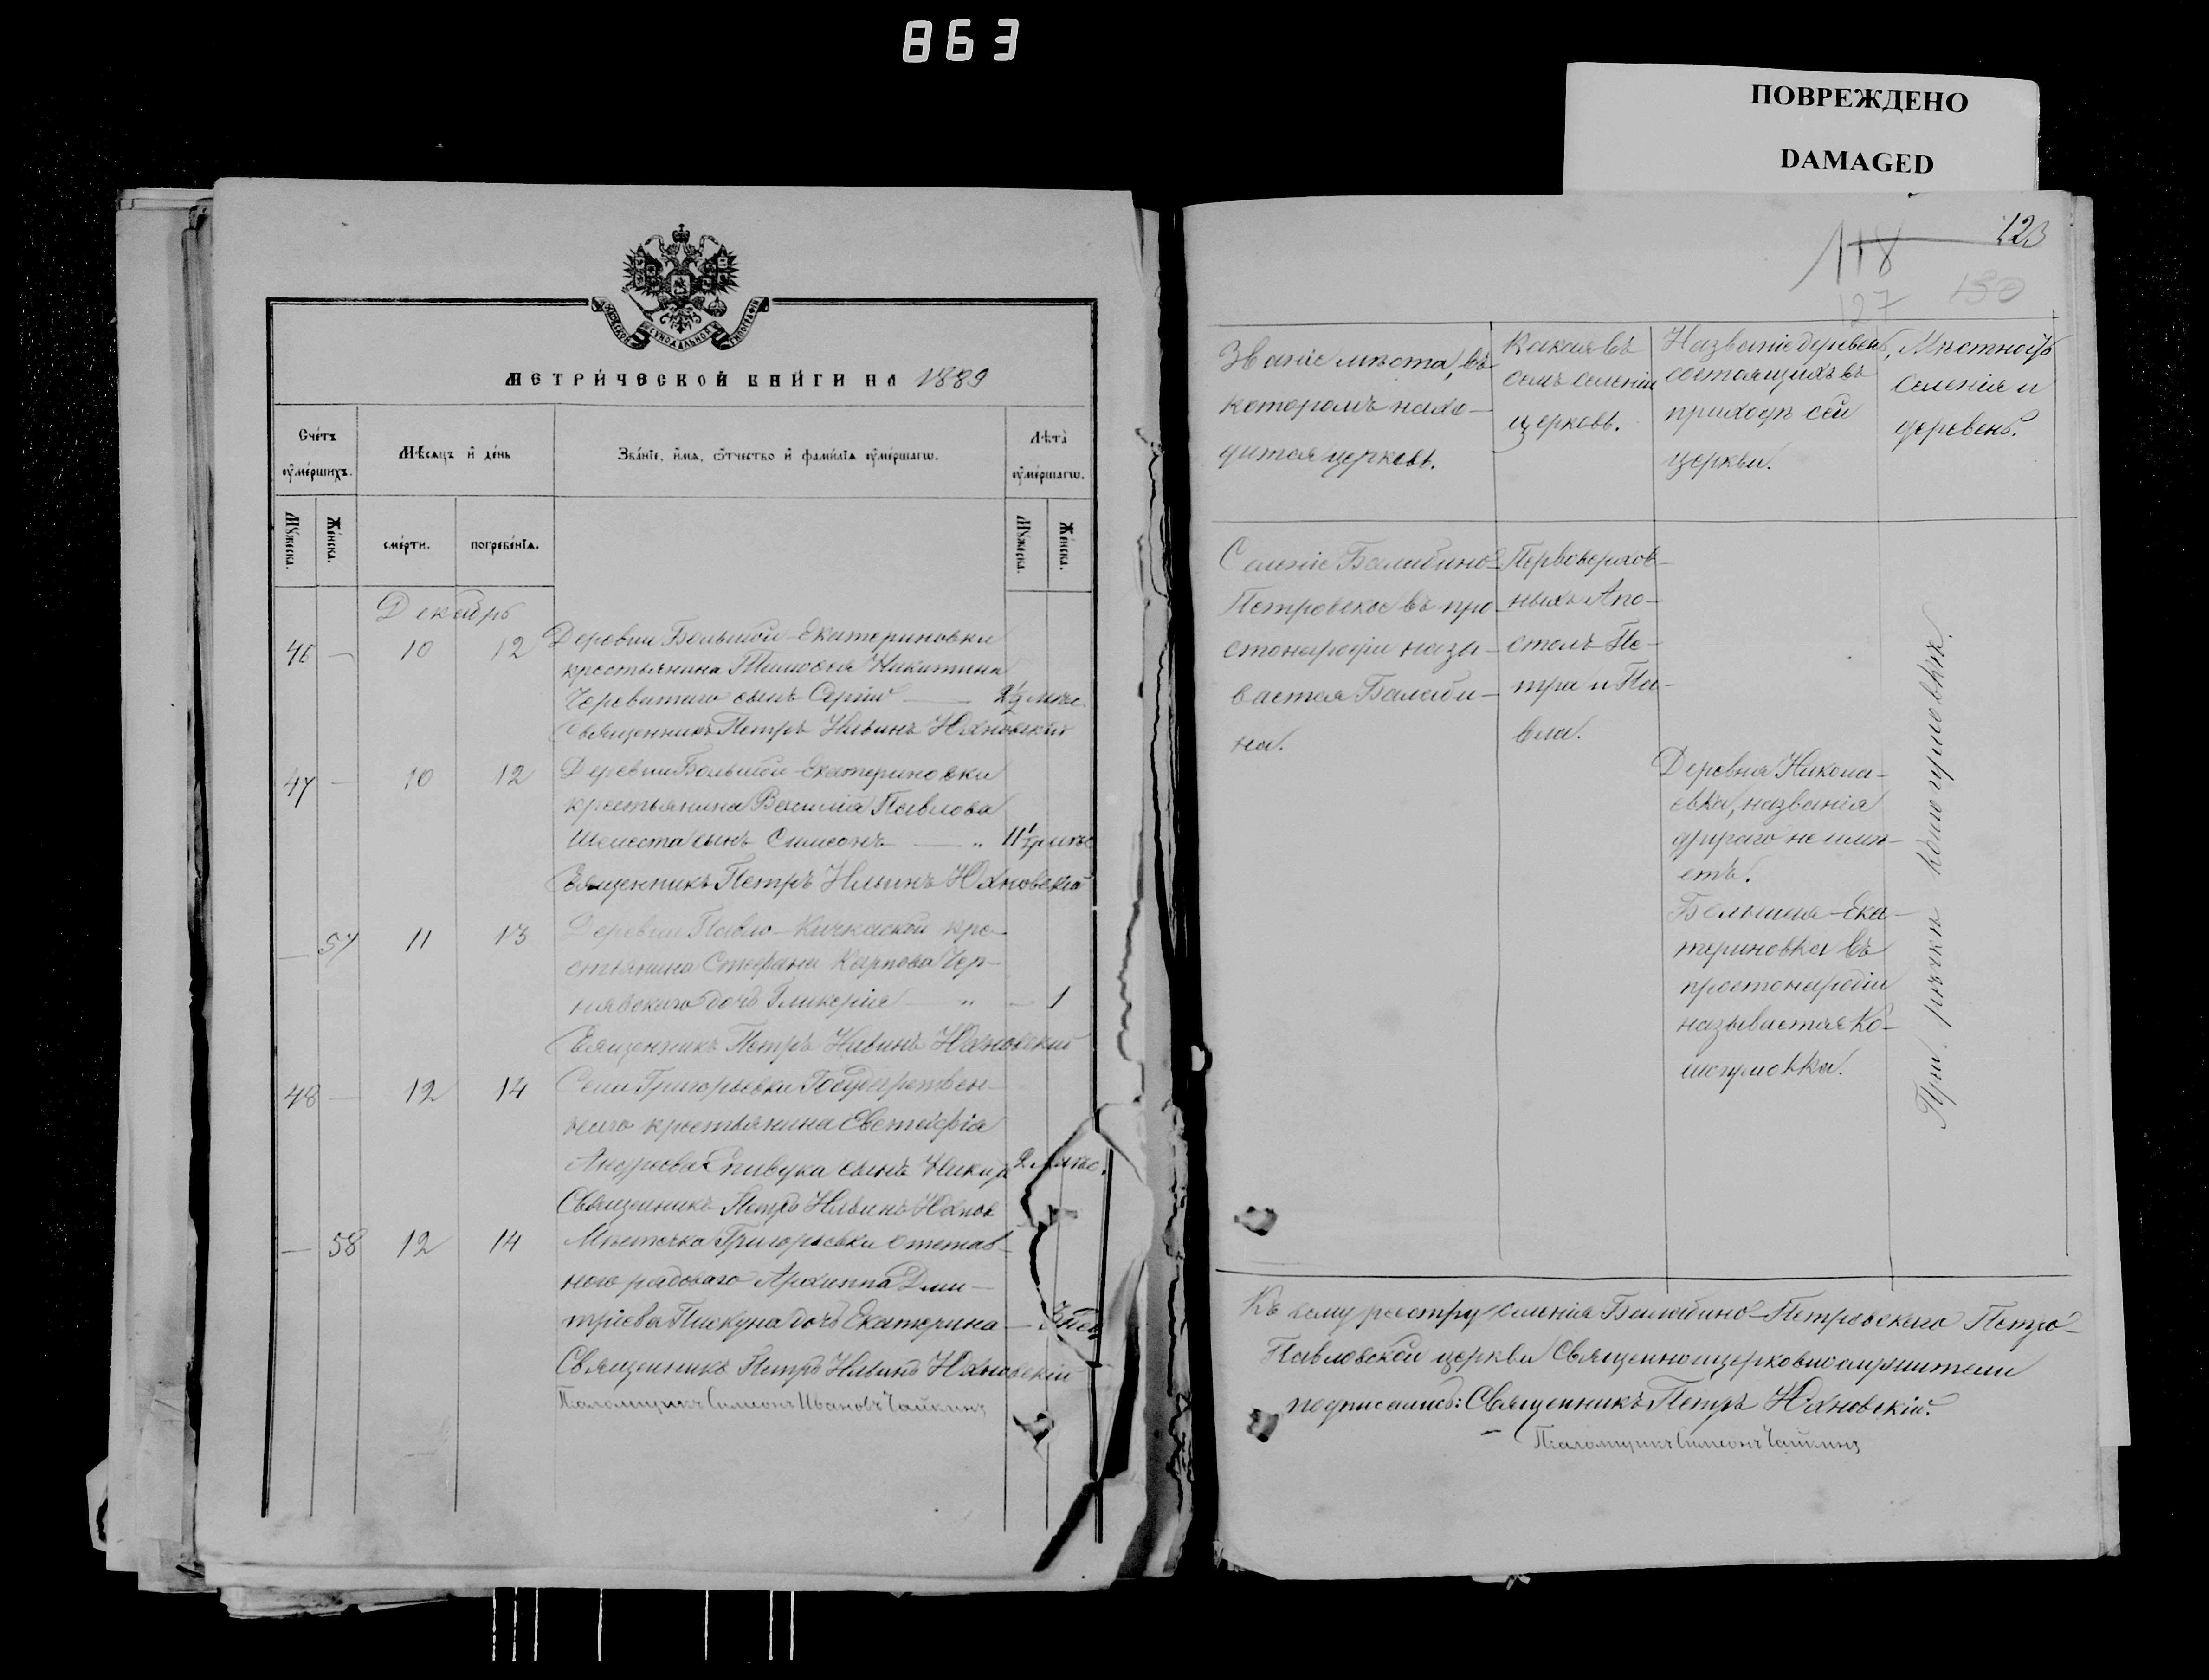 863
ПОВРЕЖДЕНО
DAMAGED
МЕТРИЧЕСКОЙ КНИГИ НА 1889
Счетъ умершихъ.
Мѣсяцъ и день
Званіе, имя, отчество и фамилія умершаго.
Лѣта умершаго.
Мужеска.
Женска.
смерти.
погребенія.
Мужеска.
Женска.
Декабрь
46 — 10 12 Деревни Большой-Екатериновки
крестьянина Тимофея Никитина
сынъ Сергій — 2½ мѣс.
Священникъ Петръ Ильинъ Юхновскій
47 — 10 12 Деревни Большой-Екатериновки
крестьянина Василія Павлова
Шелеста сынъ Симеонъ — „
Священникъ Петръ Ильинъ Юхновскій
— 57 11 13 Деревни Павло-Кичкаской кре-
стьянина Стефана Карпова Чер-
нявскаго дочь Гликерія — „ — 1
Священникъ Петръ Ильинъ Юхновскій
48 — 12 14 Села Григорьевки Государствен-
наго крестьянина Евстафія
Андреева сынъ 2 мѣс.
Священникъ Петръ Ильинъ Юхнов
— 58 12 14 Мѣстечка Григорьевки отстав-
ного рядоваго Архиппа Дми-
тріева Пискуна дочь Екатерина —
Священникъ Петръ Ильинъ Юхновскій
Псаломщикъ Симеонъ Ивановъ Чайкинъ
118
123
127
130
Званіе мѣста, въ
которомъ нахо-
дится церковь.
Какая въ
семъ селеніи
церковь.
Названіе деревень,
состоящихъ въ
приходѣ сей
церкви.
Мѣстность
селенія и
деревень.
Селеніе Балабино-
Петровское въ про-
стонародіи назы-
вается Балаби-
на.
Первоверхов-
ныхъ Апо-
столъ Пе-
тра и Па-
вла.
Деревня Никола-
евка, названія
другаго не имѣ-
етъ.
Большая-Ека-
териновка въ
простонародіи
называется Ко-
шугумовка.
При рѣчкѣ Кошугумовкѣ.
Къ сему реестру селенія Балабино-Петровскаго Петро-
Павловской церкви Священноцерковнослужители
подписались: Священникъ Петръ Юхновскій.
Псаломщикъ Симеонъ Чайкинъ